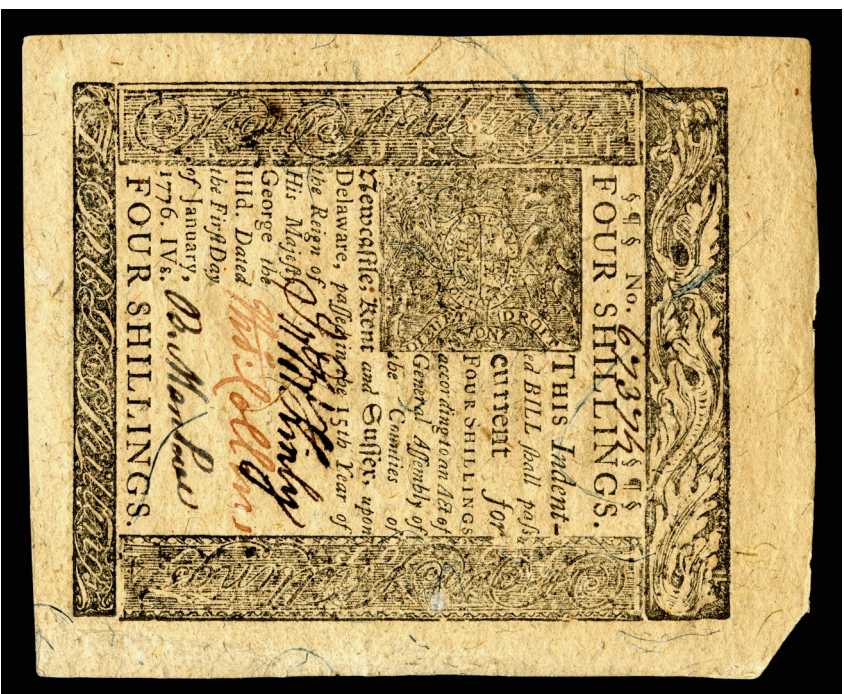 §¶§ No. 67374 §¶§
FOUR SHILLINGS.
THIS Indent-
ed BILL shall pass
current for
FOUR SHILLINGS
according to an Act of
General Assembly of
the Counties of
Newcastle, Kent and Sussex, upon
Delaware, passed in the 15th Year of
the Reign of
His Majesty
George the
IIId. Dated
the First Day
of January,
1776. IVs.
FOUR SHILLINGS.
DIEU ET MON DROIT
Four Shillings
Thos: Collins